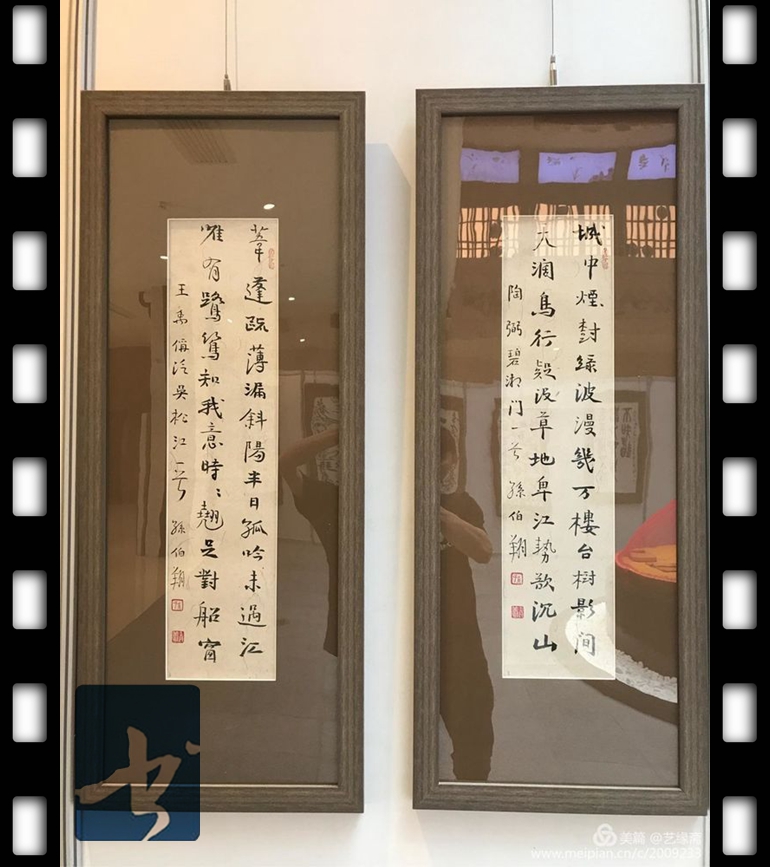 城中煙樹綠波漫幾万樓台樹影間
天濶鳥行疑没草地卑江勢欲沉山
陶弼碧湘门一首 孫伯翔
葦蓬疏薄漏斜陽半日孤吟未過江
唯有鷺鷥知我意時〻翹足對船窗
王禹偁泛吴松江一首 孫伯翔
书
美篇 @艺缘斋
www.meipian.cn/c/2009233